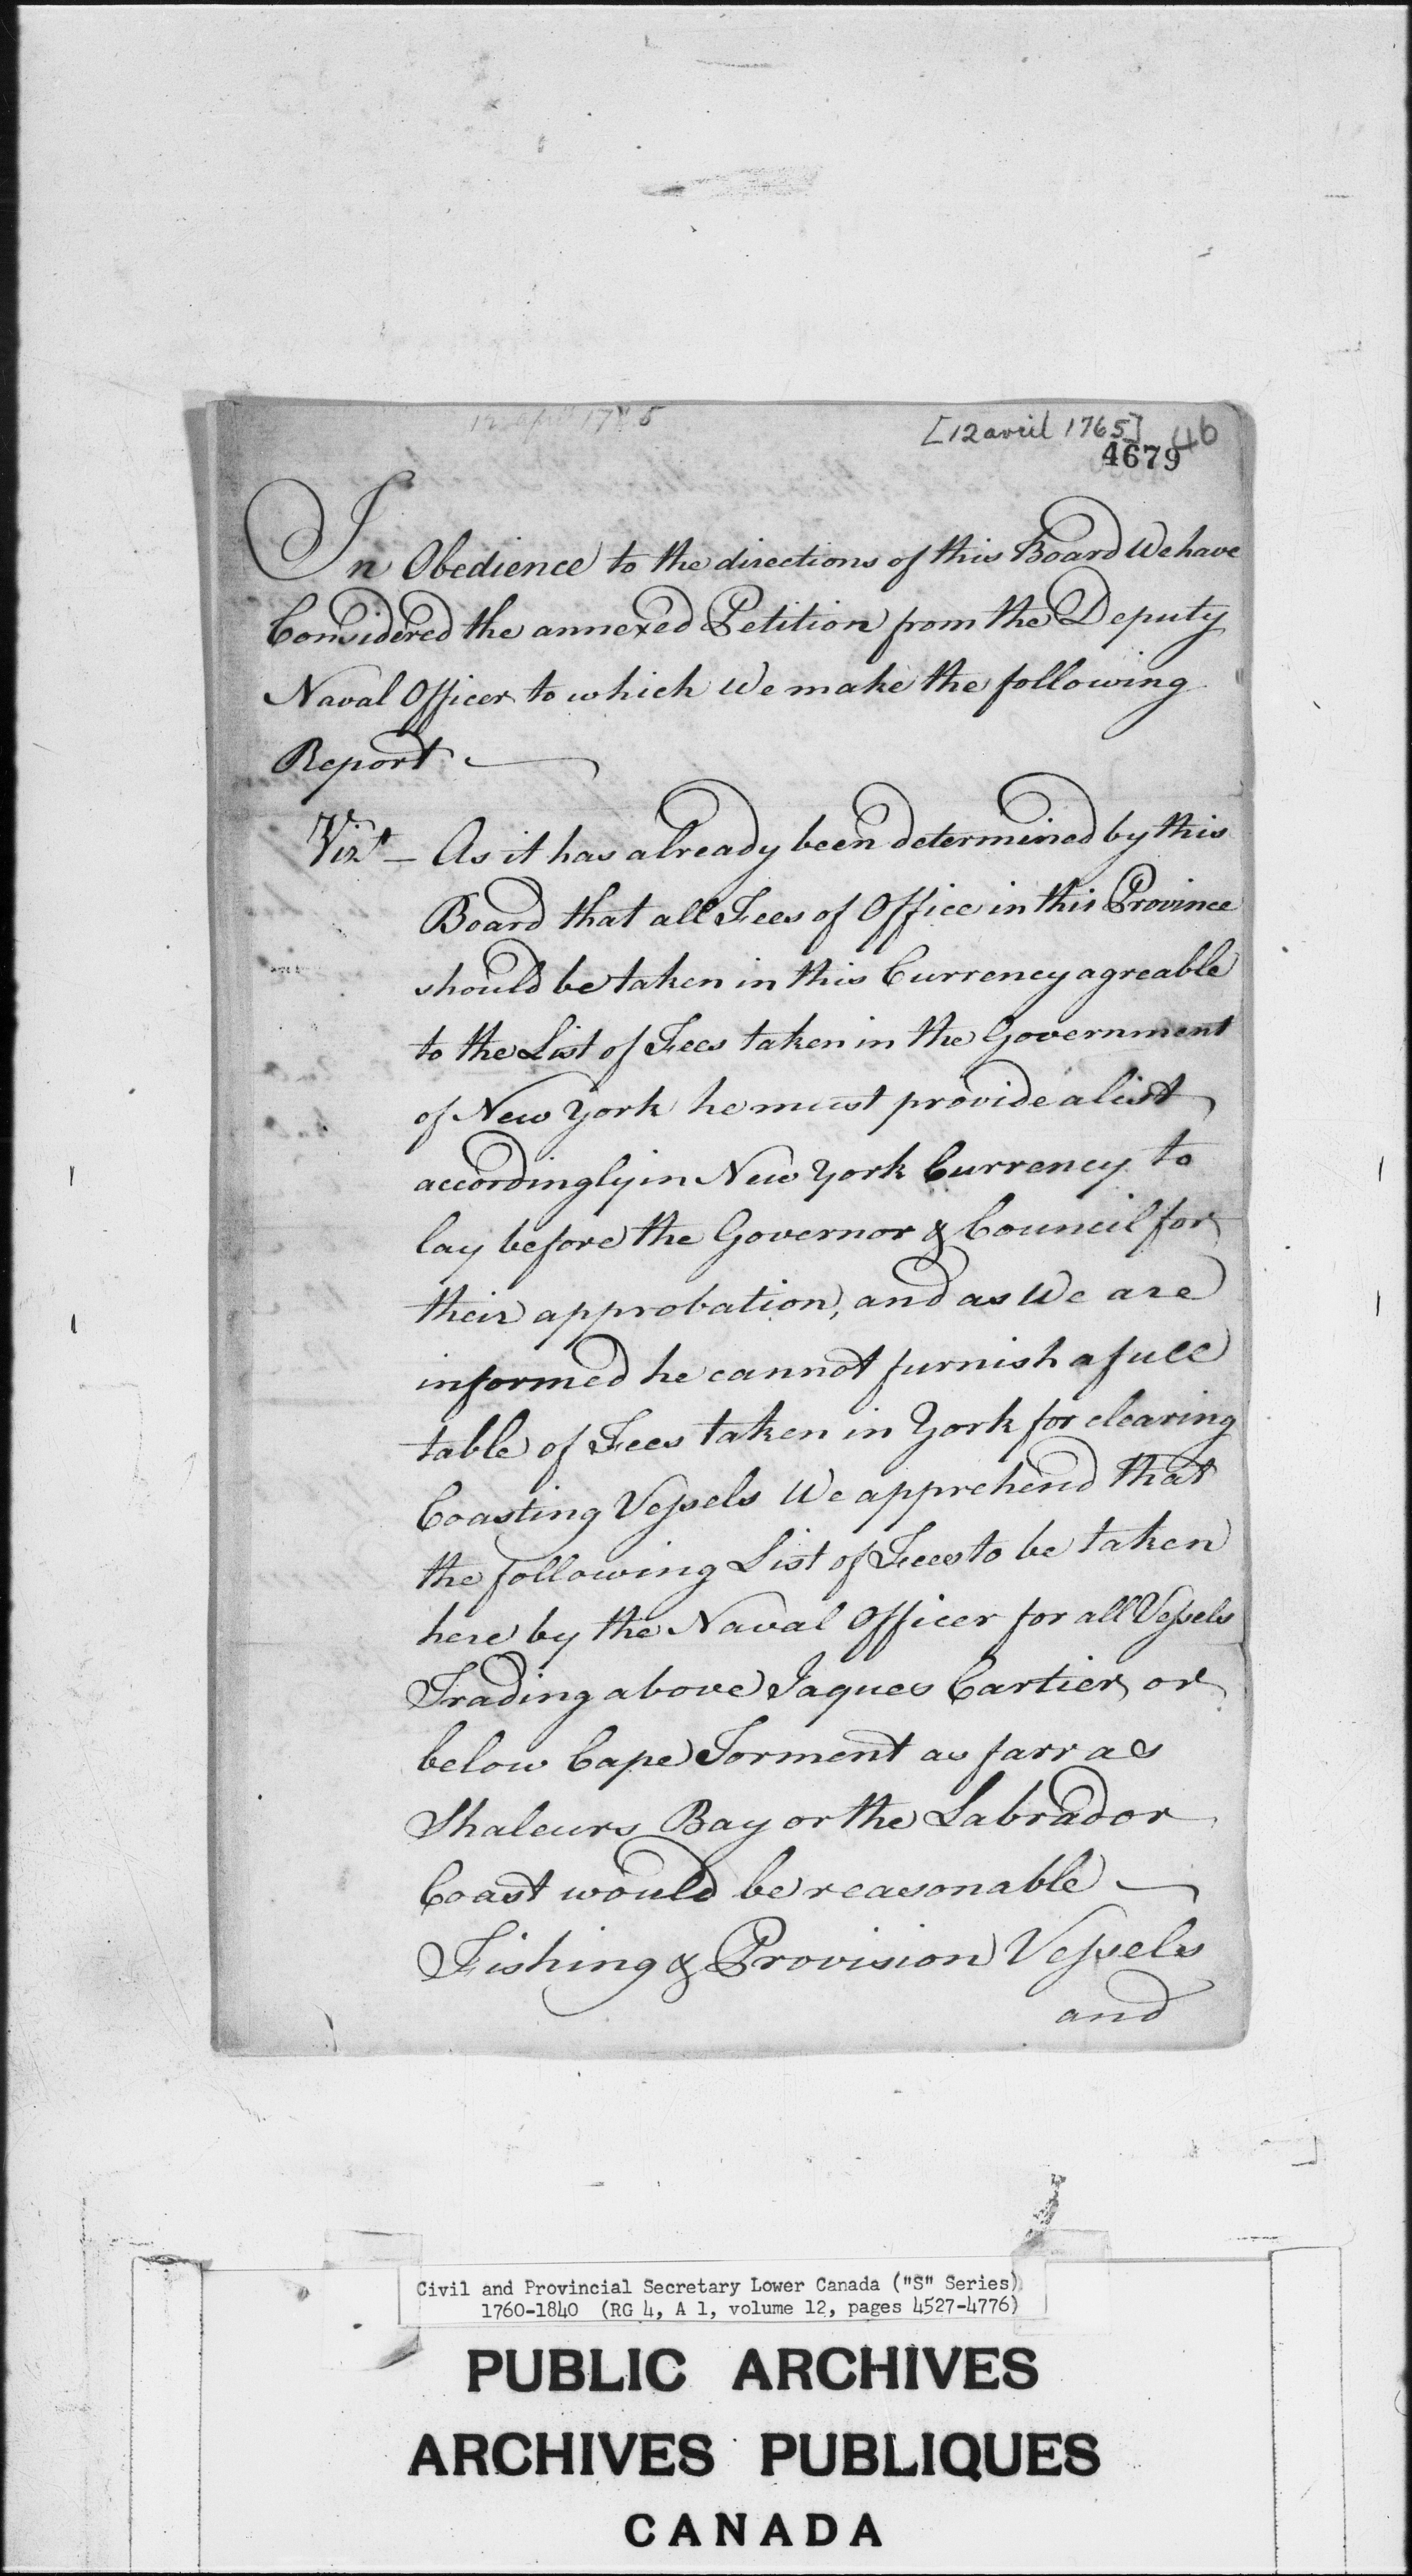 12 apr 1765
[12 avril 1765] 46
4679
In Obedience to the directions of this Board We have
Considered the annexed Petition from the Deputy
Naval Officer to which We make the following
Report
Vizt — As it has already been determined by this
Board that all Fees of Office in this Province
should be taken in this Currency agreable
to the List of Fees taken in the Government
of New York he must provide a list
accordingly in New York Currency to
lay before the Governor & Council for
their approbation, and as We are
informed he cannot furnish a full
table of Fees taken in York for clearing
Coasting Vessels We apprehend that
the following List of Fees to be taken
here by the Naval Officer for all Vessels
Trading above Jaques Cartier or
below Cape Torment as farr as
Shaleurs Bay or the Labrador
Coast would be reasonable —
Fishing & Provision Vessels
and
Civil and Provincial Secretary Lower Canada ("S" Series)
1760-1840 (RG 4, A 1, volume 12, pages 4527-4776)
PUBLIC ARCHIVES
ARCHIVES PUBLIQUES
CANADA